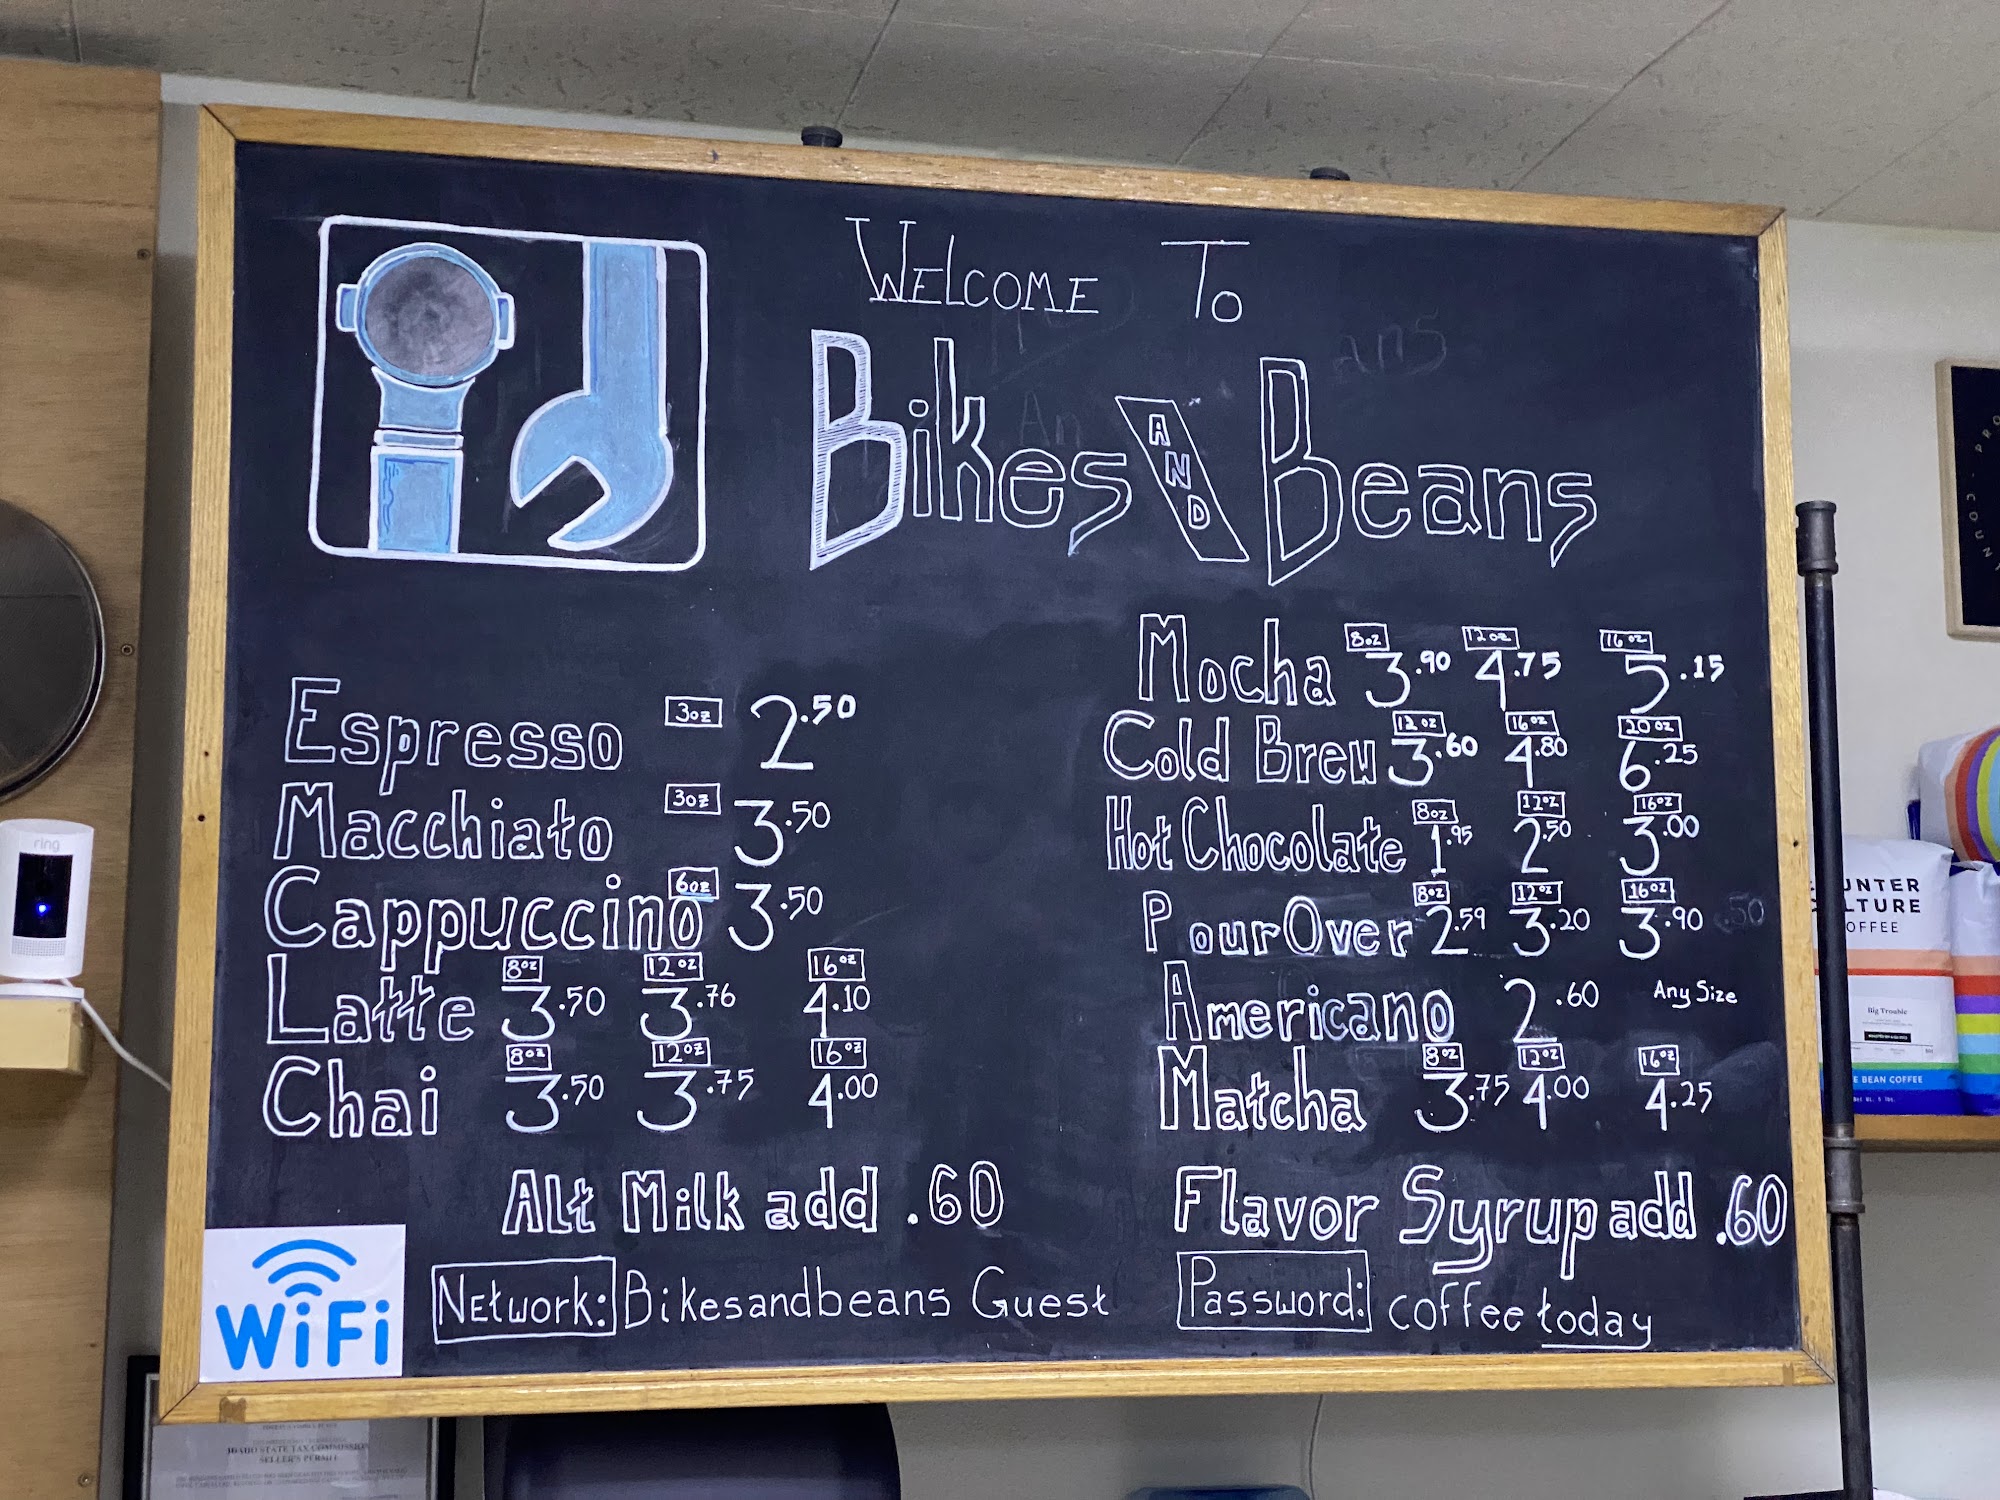 WELCOME TO
Bikes AND Beans
Espresso 3oz 2.50
Macchiato 3oz 3.50
Cappuccino 6oz 3.50
Latte 8oz 3.50 12oz 3.76 16oz 4.10
Chai 8oz 3.50 12oz 3.75 16oz 4.00
Mocha 8oz 3.90 12oz 4.75 16oz 5.15
Cold Brew 12oz 3.60 16oz 4.80 20oz 6.25
Hot Chocolate 8oz 1.95 12oz 2.50 16oz 3.00
Pour Over 8oz 2.59 12oz 3.20 16oz 3.90
Americano 2.60 Any Size
Matcha 8oz 3.75 12oz 4.00 16oz 4.25
Alt Milk add .60
Flavor Syrup add .60
WiFi
Network: Bikesandbeans Guest
Password: coffeetoday
ring
UNTER
LTURE
OFFEE
Big Trouble
E BEAN COFFEE
IDAHO STATE TAX COMMISSION
SELLER'S PERMIT